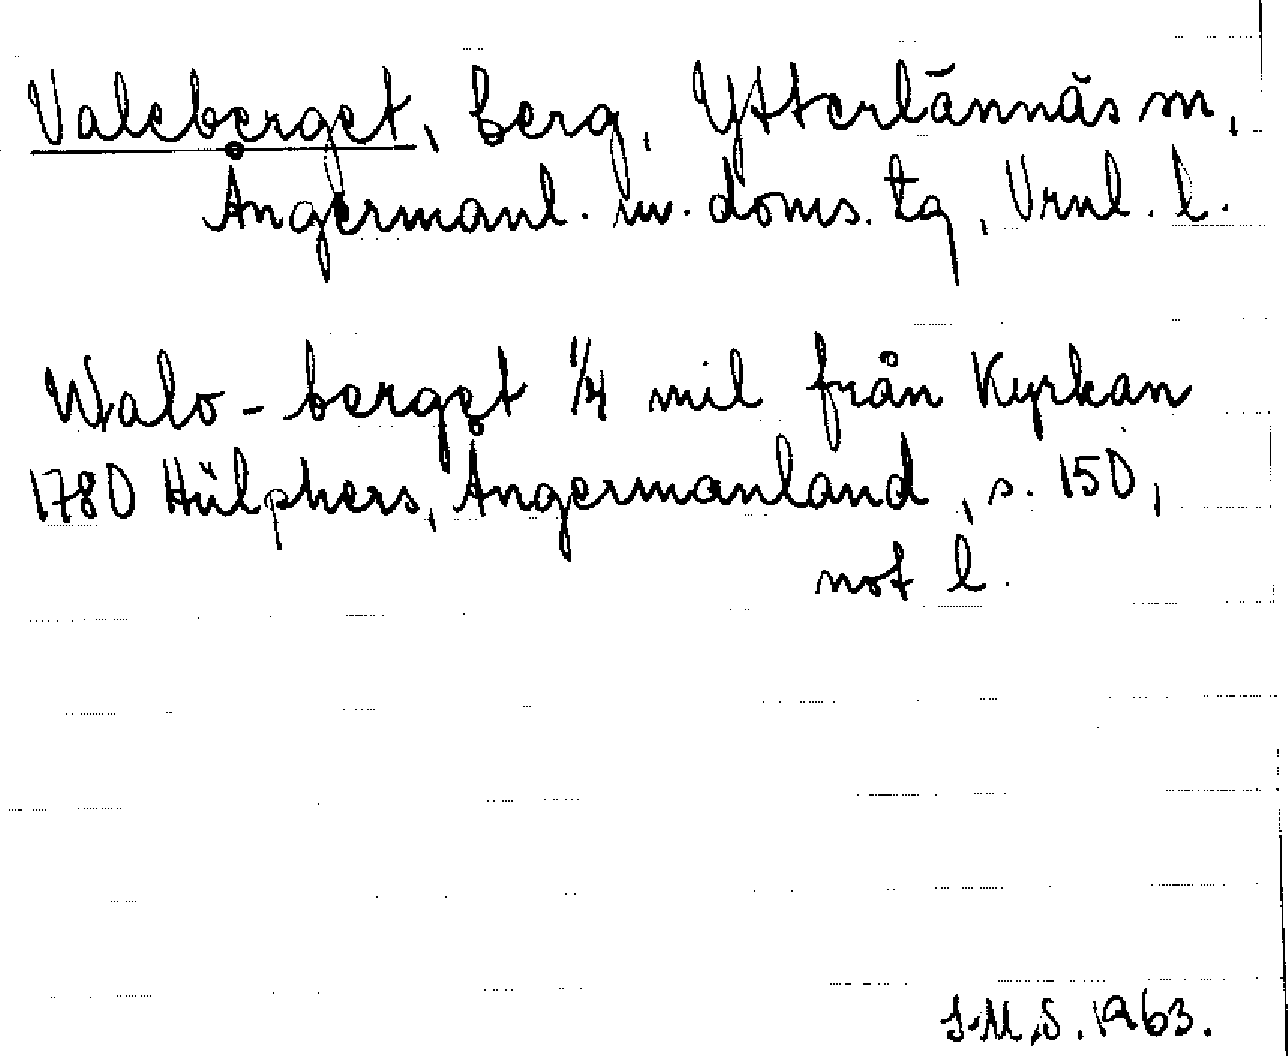 Valeberget, berg, Ytterlännäs sn,
Ångermanl. m. doms. tg, Vrnl. l.
Walo-berget 1/4 mil från Kyrkan
1780 Hülphers, Ångermanland, s. 150,
not l.
S.M.S. 1963.